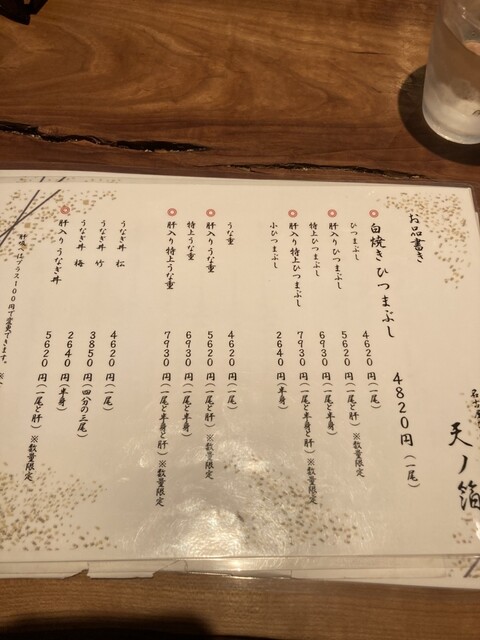 天ノ箔
お品書き
◎白焼きひつまぶし 4820円(一尾)
ひつまぶし 4620円(一尾)
◎肝入りひつまぶし 5620円(一尾と肝)※数量限定
特上ひつまぶし 6930円(一尾と半身)
◎肝入り特上ひつまぶし 7930円(一尾と半身と肝)※数量限定
小ひつまぶし 2640円(半身)
うな重 4620円(一尾)
◎肝入りうな重 5620円(一尾と肝)※数量限定
特上うな重 6930円(一尾と半身)
◎肝入り特上うな重 7930円(一尾と半身と肝)※数量限定
うなぎ丼 松 4620円(一尾)
うなぎ丼 竹 3850円(四分の三尾)
うなぎ丼 梅 2640円(半身)
◎肝入りうなぎ丼 5620円(一尾と肝)※数量限定
肝吸へはプラス100円で変更できます。